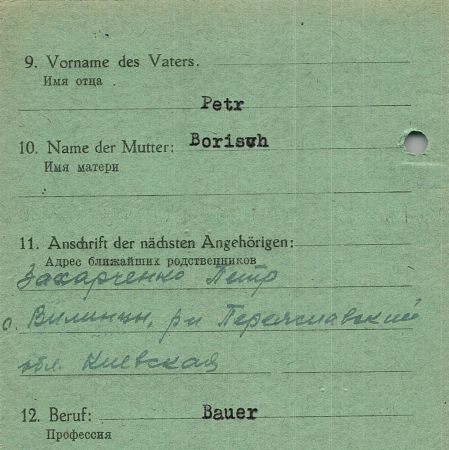 9. Vorname des Vaters.
Имя отца
Petr
10. Name der Mutter: Borisvh
Имя матери
11. Anschrift der nächsten Angehörigen:
Адрес ближайших родственников
Захарченко Петр
с. Вилинцы, рн Переяславский
обл. Киевская
12. Beruf: Bauer
Профессия